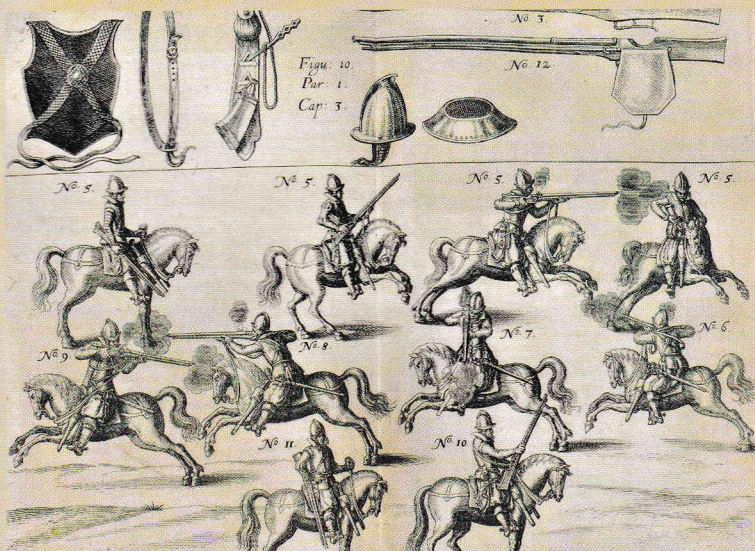 No. 3.
Figu: 10.
Par: 1.
Cap: 3.
No. 12.
No. 5.
No. 5.
No 5.
No. 5.
No. 9
No. 8.
No. 7.
No. 6.
No 11
No. 10.